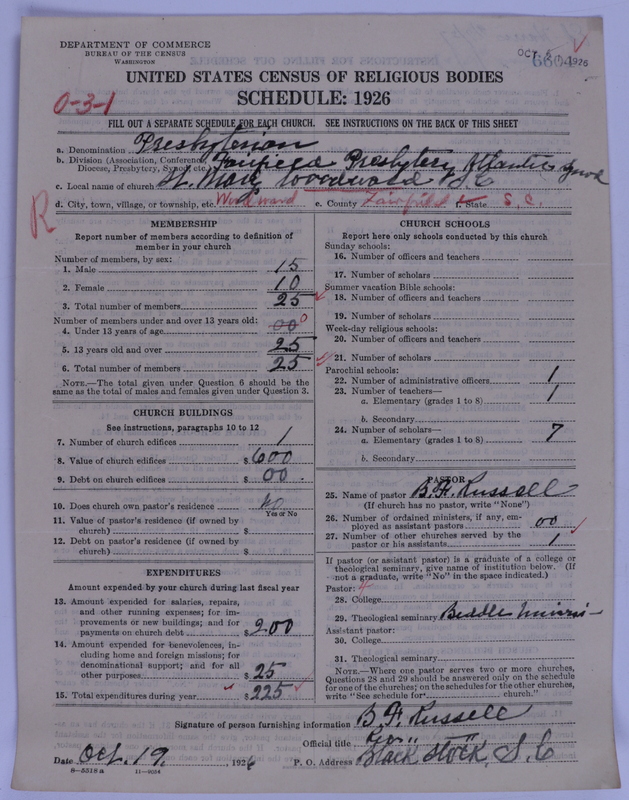 DEPARTMENT OF COMMERCE
BUREAU OF THE CENSUS
WASHINGTON
OCT 1926
UNITED STATES CENSUS OF RELIGIOUS BODIES
SCHEDULE: 1926
0-3-1
FILL OUT A SEPARATE SCHEDULE FOR EACH CHURCH. SEE INSTRUCTIONS ON THE BACK OF THIS SHEET
a. Denomination Presbyterian
b. Division (Association, Conference, Diocese, Presbytery, Synod, etc.) Fairfield Presbytery Atlantic Synod
c. Local name of church St. Mark Woodward S.C
d. City, town, village, or township, etc. Woodward e. County Fairfield State S. C.
R
MEMBERSHIP
Report number of members according to definition of
member in your church
Number of members, by sex:
1. Male 15
2. Female 10
3. Total number of members 25
Number of members under and over 13 years old:
4. Under 13 years of age 00
5. 13 years old and over 25
6. Total number of members 25
NOTE.—The total given under Question 6 should be the
same as the total of males and females given under Question 3.
CHURCH BUILDINGS
See instructions, paragraphs 10 to 12
7. Number of church edifices 1
8. Value of church edifices $ 600
9. Debt on church edifices $ 00
10. Does church own pastor's residence No
Yes or No
11. Value of pastor's residence (if owned by
church) $
12. Debt on pastor's residence (if owned by
church) $
EXPENDITURES
Amount expended by your church during last fiscal year
13. Amount expended for salaries, repairs,
and other running expenses; for im-
provements or new buildings; and for
payments on church debt $ 200
14. Amount expended for benevolences, in-
cluding home and foreign missions; for
denominational support; and for all
other purposes $ 25
15. Total expenditures during year $ 225
CHURCH SCHOOLS
Report here only schools conducted by this church
Sunday schools:
16. Number of officers and teachers
17. Number of scholars
Summer vacation Bible schools:
18. Number of officers and teachers
19. Number of scholars
Week-day religious schools:
20. Number of officers and teachers
21. Number of scholars
Parochial schools:
22. Number of administrative officers 1
23. Number of teachers—
a. Elementary (grades 1 to 8) 1
b. Secondary
24. Number of scholars—
a. Elementary (grades 1 to 8) 7
b. Secondary
PASTOR
25. Name of pastor B. F. Russell
(If church has no pastor, write "None")
26. Number of ordained ministers, if any, em-
ployed as assistant pastors 00
27. Number of other churches served by the
pastor or his assistants 1
If pastor (or assistant pastor) is a graduate of a college or
theological seminary, give name of institution below. (If
not a graduate, write "No" in the space indicated.)
Pastor:
28. College
29. Theological seminary Biddle
Assistant pastor:
30. College
31. Theological seminary
NOTE.—Where one pastor serves two or more churches,
Questions 28 and 29 should be answered only on the schedule
for one of the churches; on the schedules for the other churches,
write "See schedule for church."
Signature of person furnishing information B. F. Russell
Official title
Date Oct. 19, 1926 P. O. Address Blackstock, S. C
8—5518a 11—9024